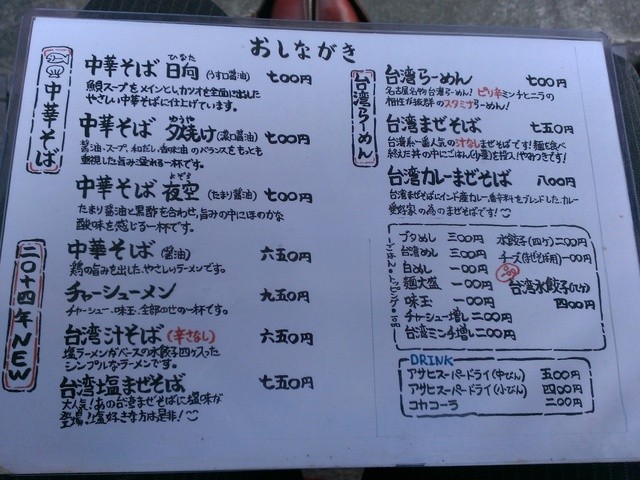 おしながき
中華そば
中華そば 日向 (うす口醤油) 七〇〇円
ひなた
鰻スープをメインとしカツオを全面に出した
やさしい中華そばに仕上げています。
中華そば 夕焼け (濃口醤油) 七〇〇円
ゆうやけ
醤油・スープ、和だし、香味油のバランスをもっとも
重視した旨み溢れる一杯です。
中華そば 夜空 (たまり醤油) 七〇〇円
よぞら
たまり醤油と黒酢を合わせ、旨みの中にほのかな
酸味を感じる一杯です。
二〇十四年NEW
中華そば (醤油) 六五〇円
鶏の旨みを出した、やさしいラーメンです。
チャーシューメン 九五〇円
チャーシュー、味玉、全部のせの一杯です。
台湾汁そば (辛さなし) 六五〇円
塩ラーメンがベースの水餃子四ヶ入った
シンプルなラーメンです。
台湾塩まぜそば 七五〇円
大人気!あの台湾まぜそばに塩味が
登場!塩好きな方は是非!
台湾らーめん
台湾らーめん 七〇〇円
名古屋名物台湾らーめん!ピリ辛ミンチとニラの
相性が抜群のスタミナらーめん!
台湾まぜそば 七五〇円
台湾系一番人気の汁なしまぜそばです!麺を食べ
終えた丼の中にごはん(少量)を投入がおわりです!
台湾カレーまぜそば 八〇〇円
台湾まぜそばにインド産カレー香辛料をブレンドした、カレー
愛好家の為のまぜそばです!
ごはん・トッピング・一品
ブタめし 三〇〇円
台湾めし 三〇〇円
白めし 一〇〇円
麺大盛 一〇〇円
味玉 一〇〇円
チャーシュー増し 二〇〇円
台湾ミンチ増し 二〇〇円
水餃子(四ヶ) 二〇〇円
チーズ(まぜそば用) 一〇〇円
台湾水餃子(八ヶ)
四〇〇円
DRINK
アサヒスーパードライ(中びん) 五〇〇円
アサヒスーパードライ(小びん) 四〇〇円
コカコーラ 二〇〇円